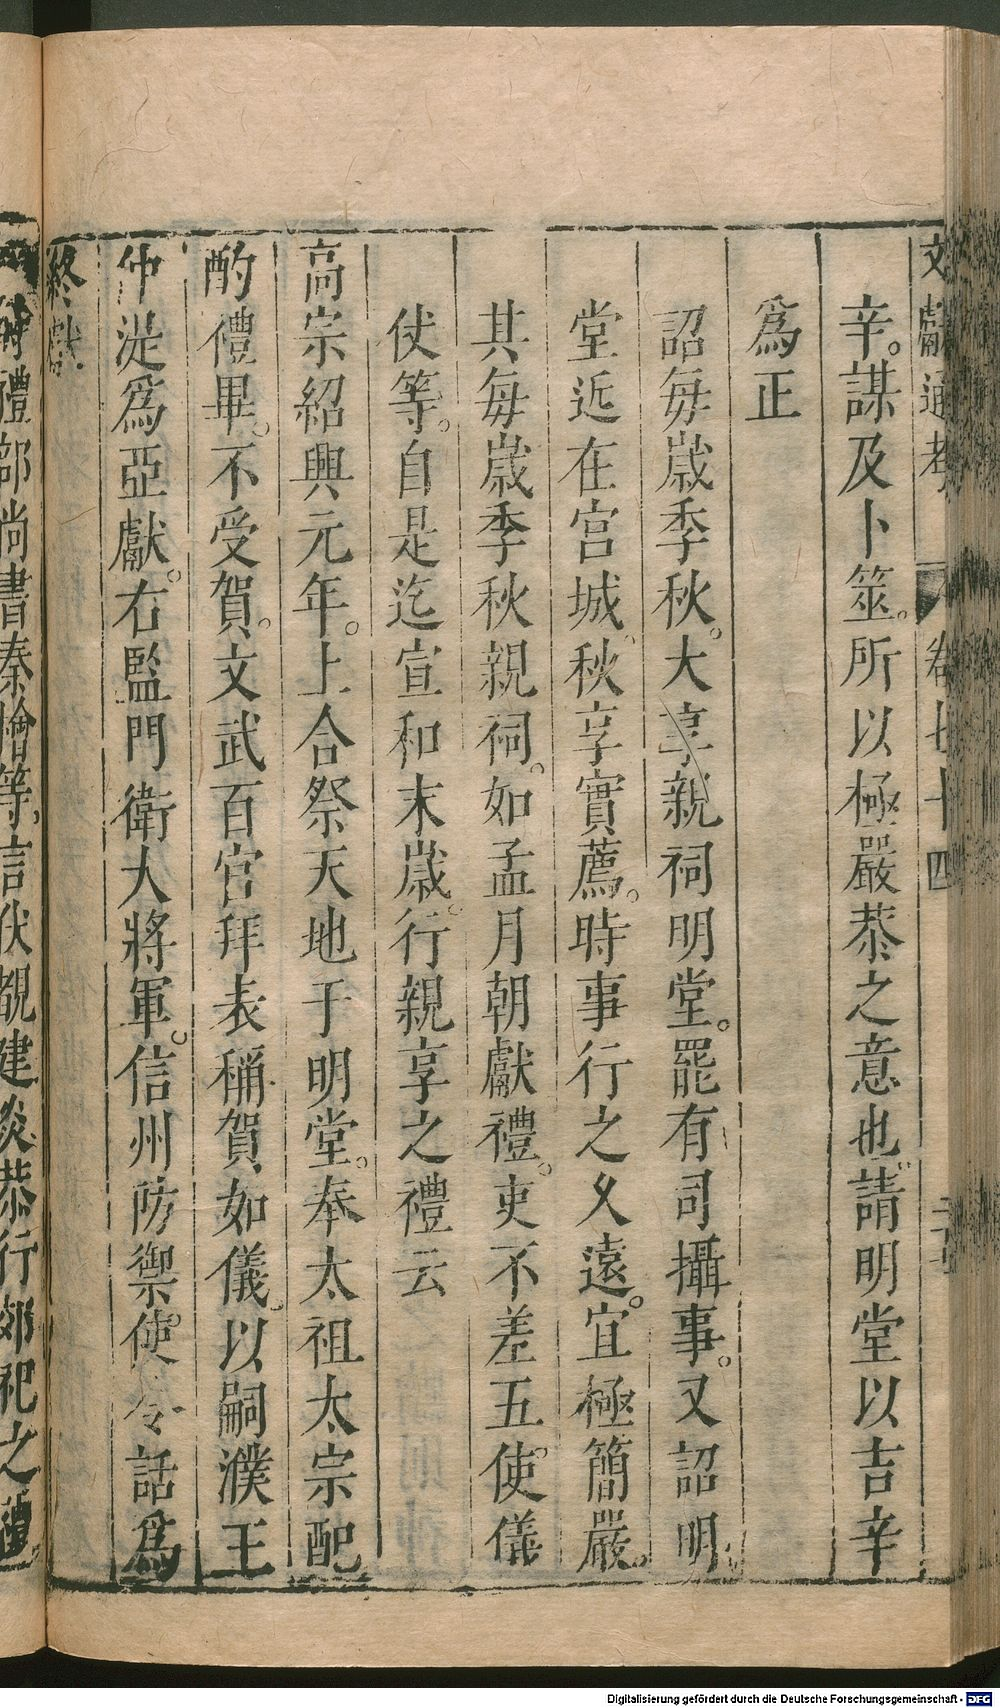 文獻通考 卷七十四
辛。謀及卜筮。所以極嚴恭之意也。請明堂以吉辛
為正
詔每歲季秋。大享親祠明堂。罷有司攝事。又詔明
堂近在宮城。秋享實薦。時事行之久遠。宜極簡嚴。
其每歲季秋親祠。如孟月朝獻禮。吏不差五使。儀
仗等。自是迄宣和末歲。行親享之禮云
高宗紹興元年。上合祭天地于明堂。奉太祖太宗配
酌禮畢。不受賀。文武百官拜表稱賀如儀。以嗣濮王
仲湜為亞獻。右監門衛大將軍。信州防禦使令話為
終獻。
禮部尚書秦檜等。言伏覩建炎恭行郊祀之禮
Digitalisierung gefördert durch die Deutsche Forschungsgemeinschaft - DFG